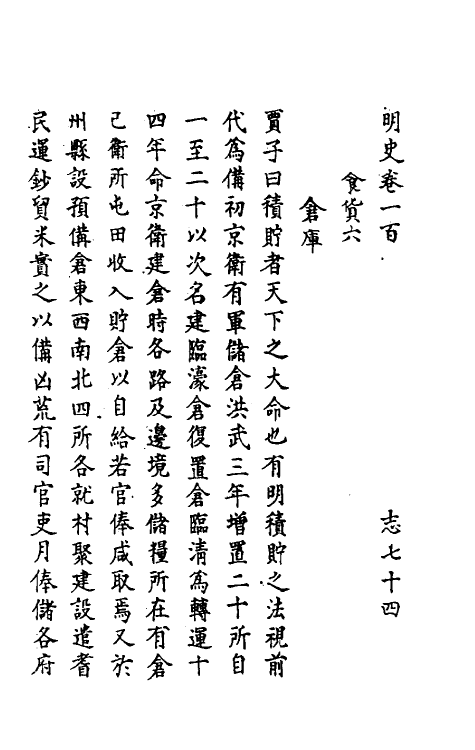 明史卷一百　志七十四
食貨六
倉庫
賈子曰積貯者天下之大命也有明積貯之法視前
代為備初京衛有軍儲倉洪武三年增置二十所自
一至二十以次名建臨濠倉復置倉臨清為轉運十
四年命京衛建倉時各路及邊境多儲糧所在有倉
已衛所屯田收入貯倉以自給若官俸咸取焉又於
州縣設預備倉東西南北四所各就村聚建設遣耆
民運鈔貿米實之以備凶荒有司官吏月俸儲各府